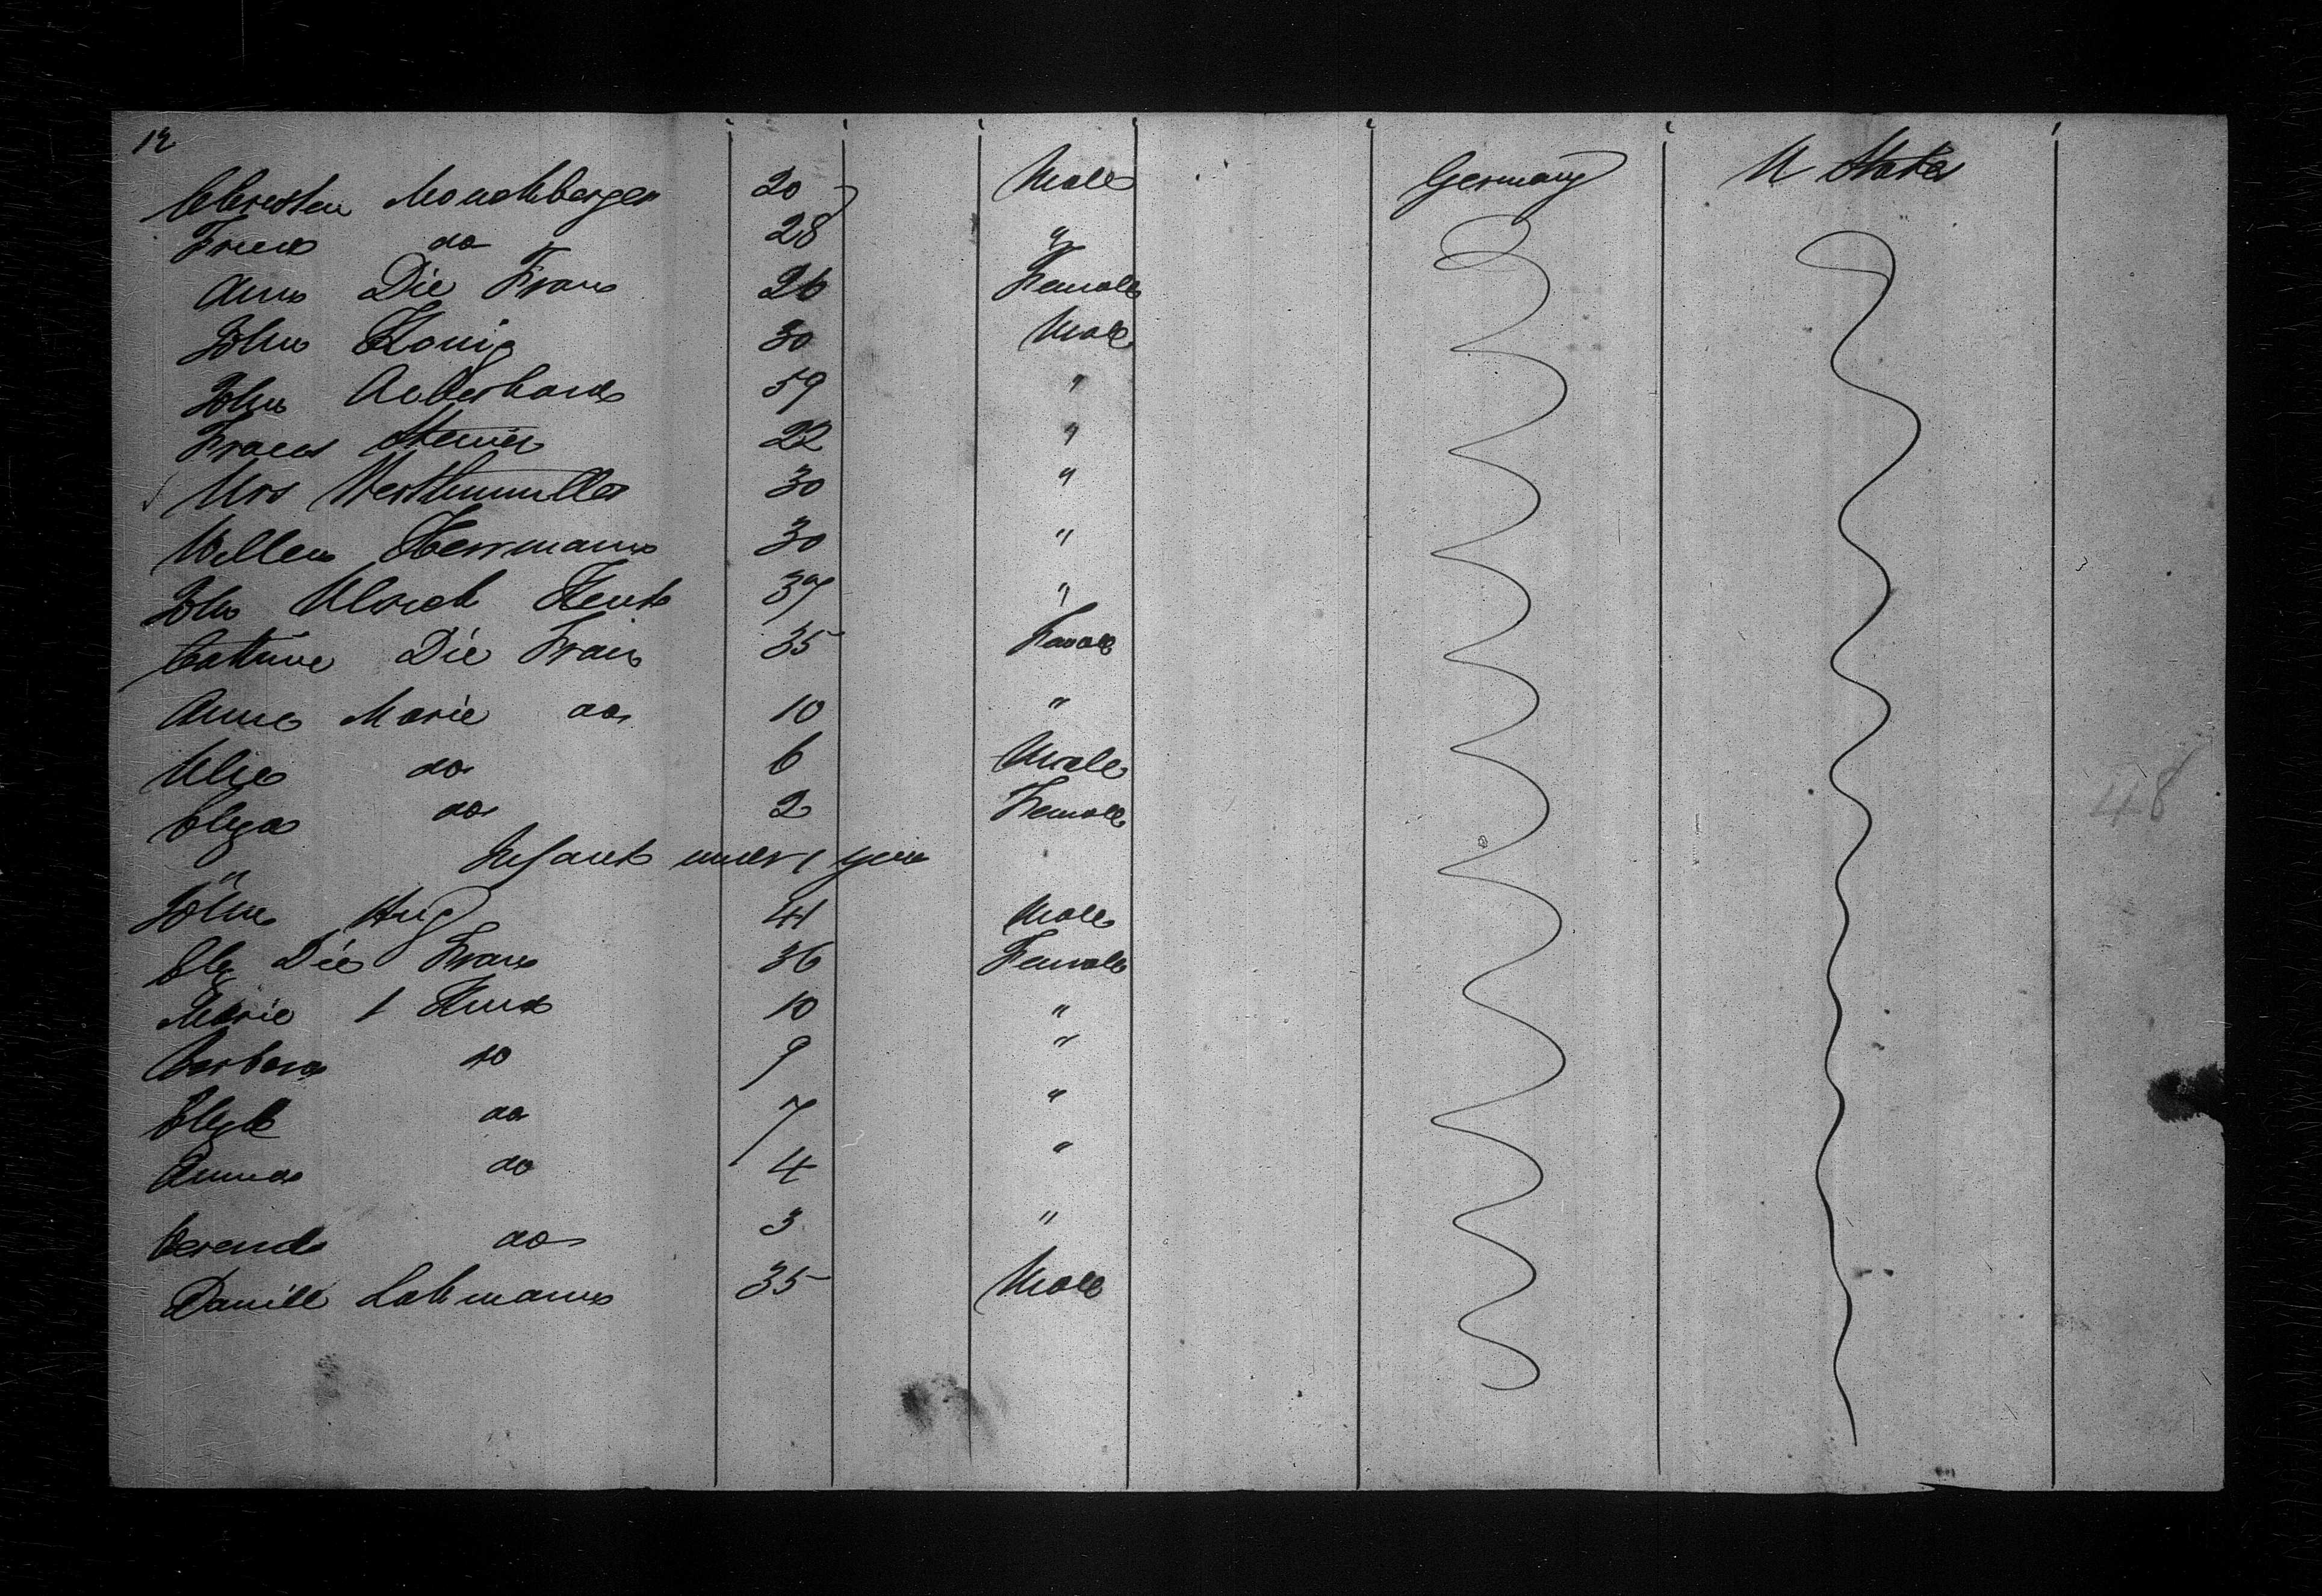 12
Christen Monchberger 20 Male Germany U States
Fried do 28 "
Anna Die Frau 26 Female
John König 30 Male
John Aebershard 59 "
Frans Steiner 22 "
Urs Werthmuller 30 "
Willem Herrmann 30 "
John Ulrich 37 "
Cathrine Die Frau 35 Female
Anna Marie do 10 "
Ulic do 6 Male
Eliza do 2 Female
" Infant under 1 year
John Hug 41 Male
Elz Die Frau 36 Female
Marie 1 Kind 10 "
Barbara do 9 "
do 7 "
Anna do 4 "
Verena do 3 "
Daniel Lehmann 35 Male
48